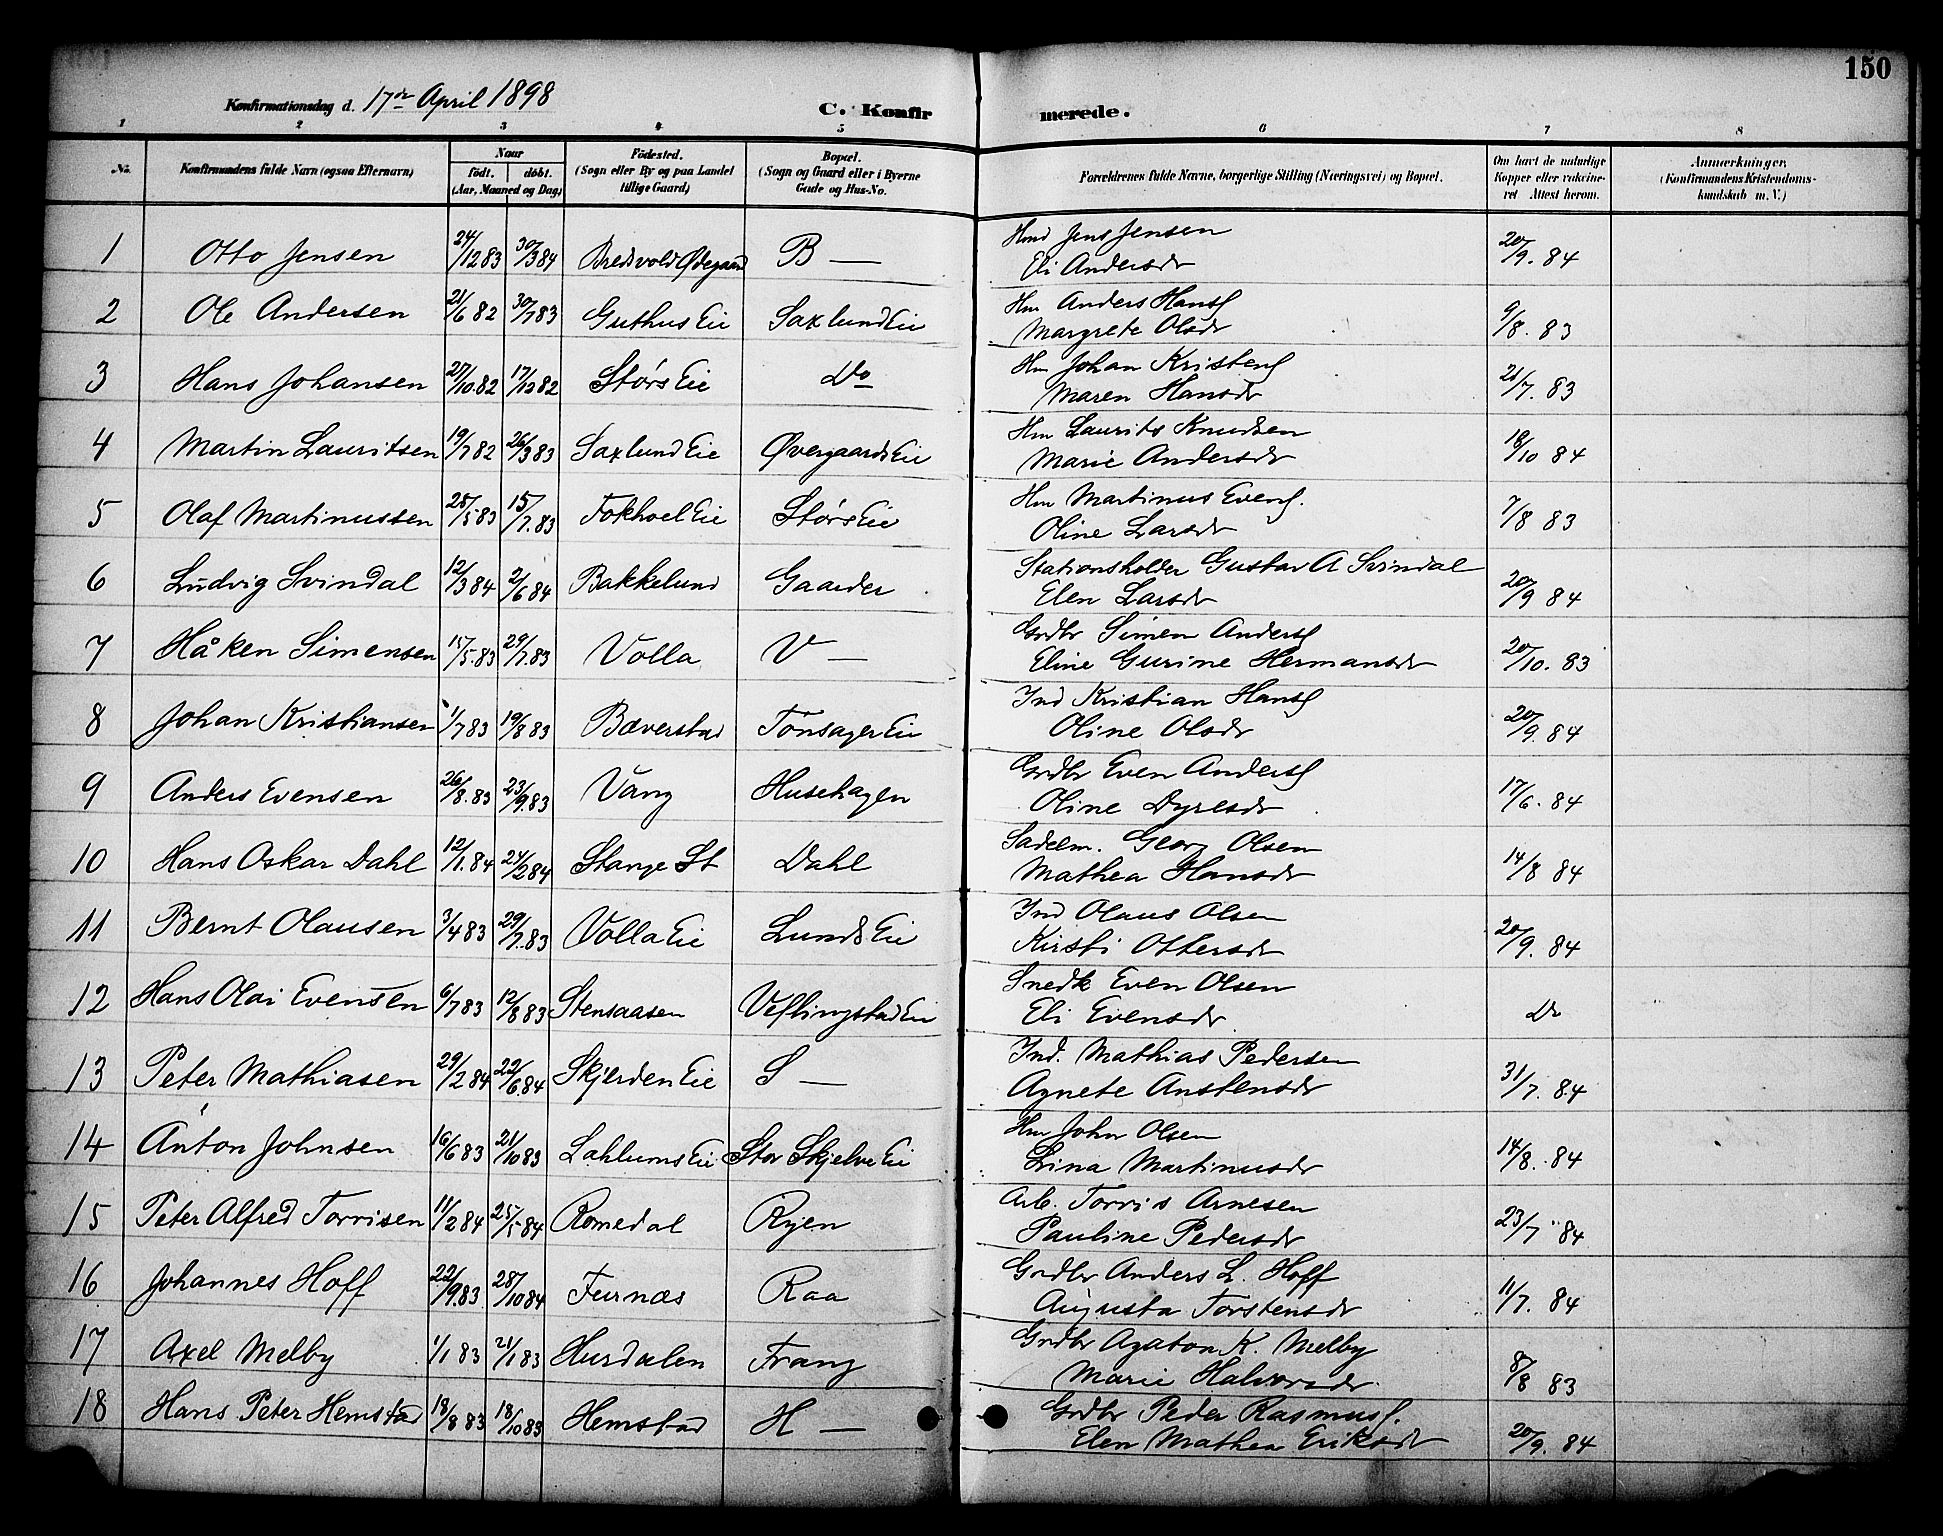 150
Konfirmationsdag d. 17de April 1898 C. Konfirmerede.
1 2 3 4 5 6 7 8
No. Konfirmandens fulde Navn (ogsaa Efternavn) Naar födt. döbt. (Aar, Maaned og Dag) Födested. (Sogn eller By og paa Landet tillige Gaard) Bopæl. (Sogn og Gaard eller i Byerne Gade og Hus-No. Forældrenes fulde Navne, borgerlige Stilling (Næringsvei) og Bopæl. Om havt de naturlige Kopper eller vakcineret Attest herom. Anmærkninger. (Konfirmandens Kristendomskundskab m. V.)
1 Otto Jensen 24/12 83 30/3 84 Bredvold Ødegaard B — Hmd Jens Jensen 20/9. 84
Eli Andersdr
2 Ole Andersen 21/6 82 30/7 83 Guthus Eie Saxlund Eie Hm Anders Hansf 9/8. 83
Margrete Olsdr
3 Hans Johansen 27/10.82 17/12 82 Størs Eie Do Hm Johan Kristenf 21/7. 83
Maren Hansdr
4 Martin Lauritsen 19/7 82 26/3 83 Saxlund Eie Øvergaards Eie Hm Laurits Knudsen 18/10 84
Marie Andersdr
5 Olaf Martinussen 25/5 83 15/7.83 Fokhoel Eie Størs Eie Hm Martinus Evenf. 7/8 83
Oline Larsdr
6 Ludvig Svindal 12/3 84 2/6 84 Bakkelund Gaarder Stationsholder Gustav A Svindal 20/9 84
Elen Larsdr
7 Håken Simensen 15/5.83 29/7.83 Volla V — Grdbr Simen Andersf 20/10. 83
Eline Gurine Hermansdr
8 Johan Kristiansen 1/7 83 19/8 83 Bæverstad Tonsager Eie Ind Kristian Hansf 20/9. 84
Oline Olsdr
9 Anders Evensen 26/8.83 23/9.83 Vang Husehagen Grdbr Even Andersf 17/6. 84
Oline Dyresdr
10 Hans Oskar Dahl 12/1.84 24/2 84 Stange St Dahl Sadelm. Georg Olsen 14/8 84
Mathea Hansdr
11 Bernt Olausen 3/4 83 29/7.83 Volla Eie Lunds Eie Ind Olaus Olsen 20/9. 84
Kirsti Ottersdr
12 Hans Olai Evensen 6/7 83 12/8 83 Stensaasen Veflingstad Eie Snedk Even Olsen Do
Eli Evensdr
13 Peter Mathiasen 29/2 84 22/6.84 Skjerden Eie S — Ind. Mathias Pedersen 31/7. 84
Agnete Anstensdr
14 Anton Johnsen 16/6 83 21/10 83 Lahlums Eie Stor Skjelve Eie Hm John Olsen 14/8. 84
Lina Martinusdr
15 Peter Alfred Torrisen 11/2 84 25/5 84 Romedal Ryen Arb. Torris Arnesen 23/7 84
Pauline Pedersdr
16 Johannes Hoff 22/9.83 28/10 84 Furnæs Raa Grdbr Anders L. Hoff 11/7. 84
Augusta Torstensdr
17 Axel Melby 1/1 83 21/1 83 Hurdalen Frang Grdbr Agaton K. Melby 8/8 83
Marie Halvorsdr.
18 Hans Peter Hemstad 18/8 83 18/10 83 Hemstad H — Grdbr Peder Rasmusf. 20/9. 84
Elen Mathea Eriksdr